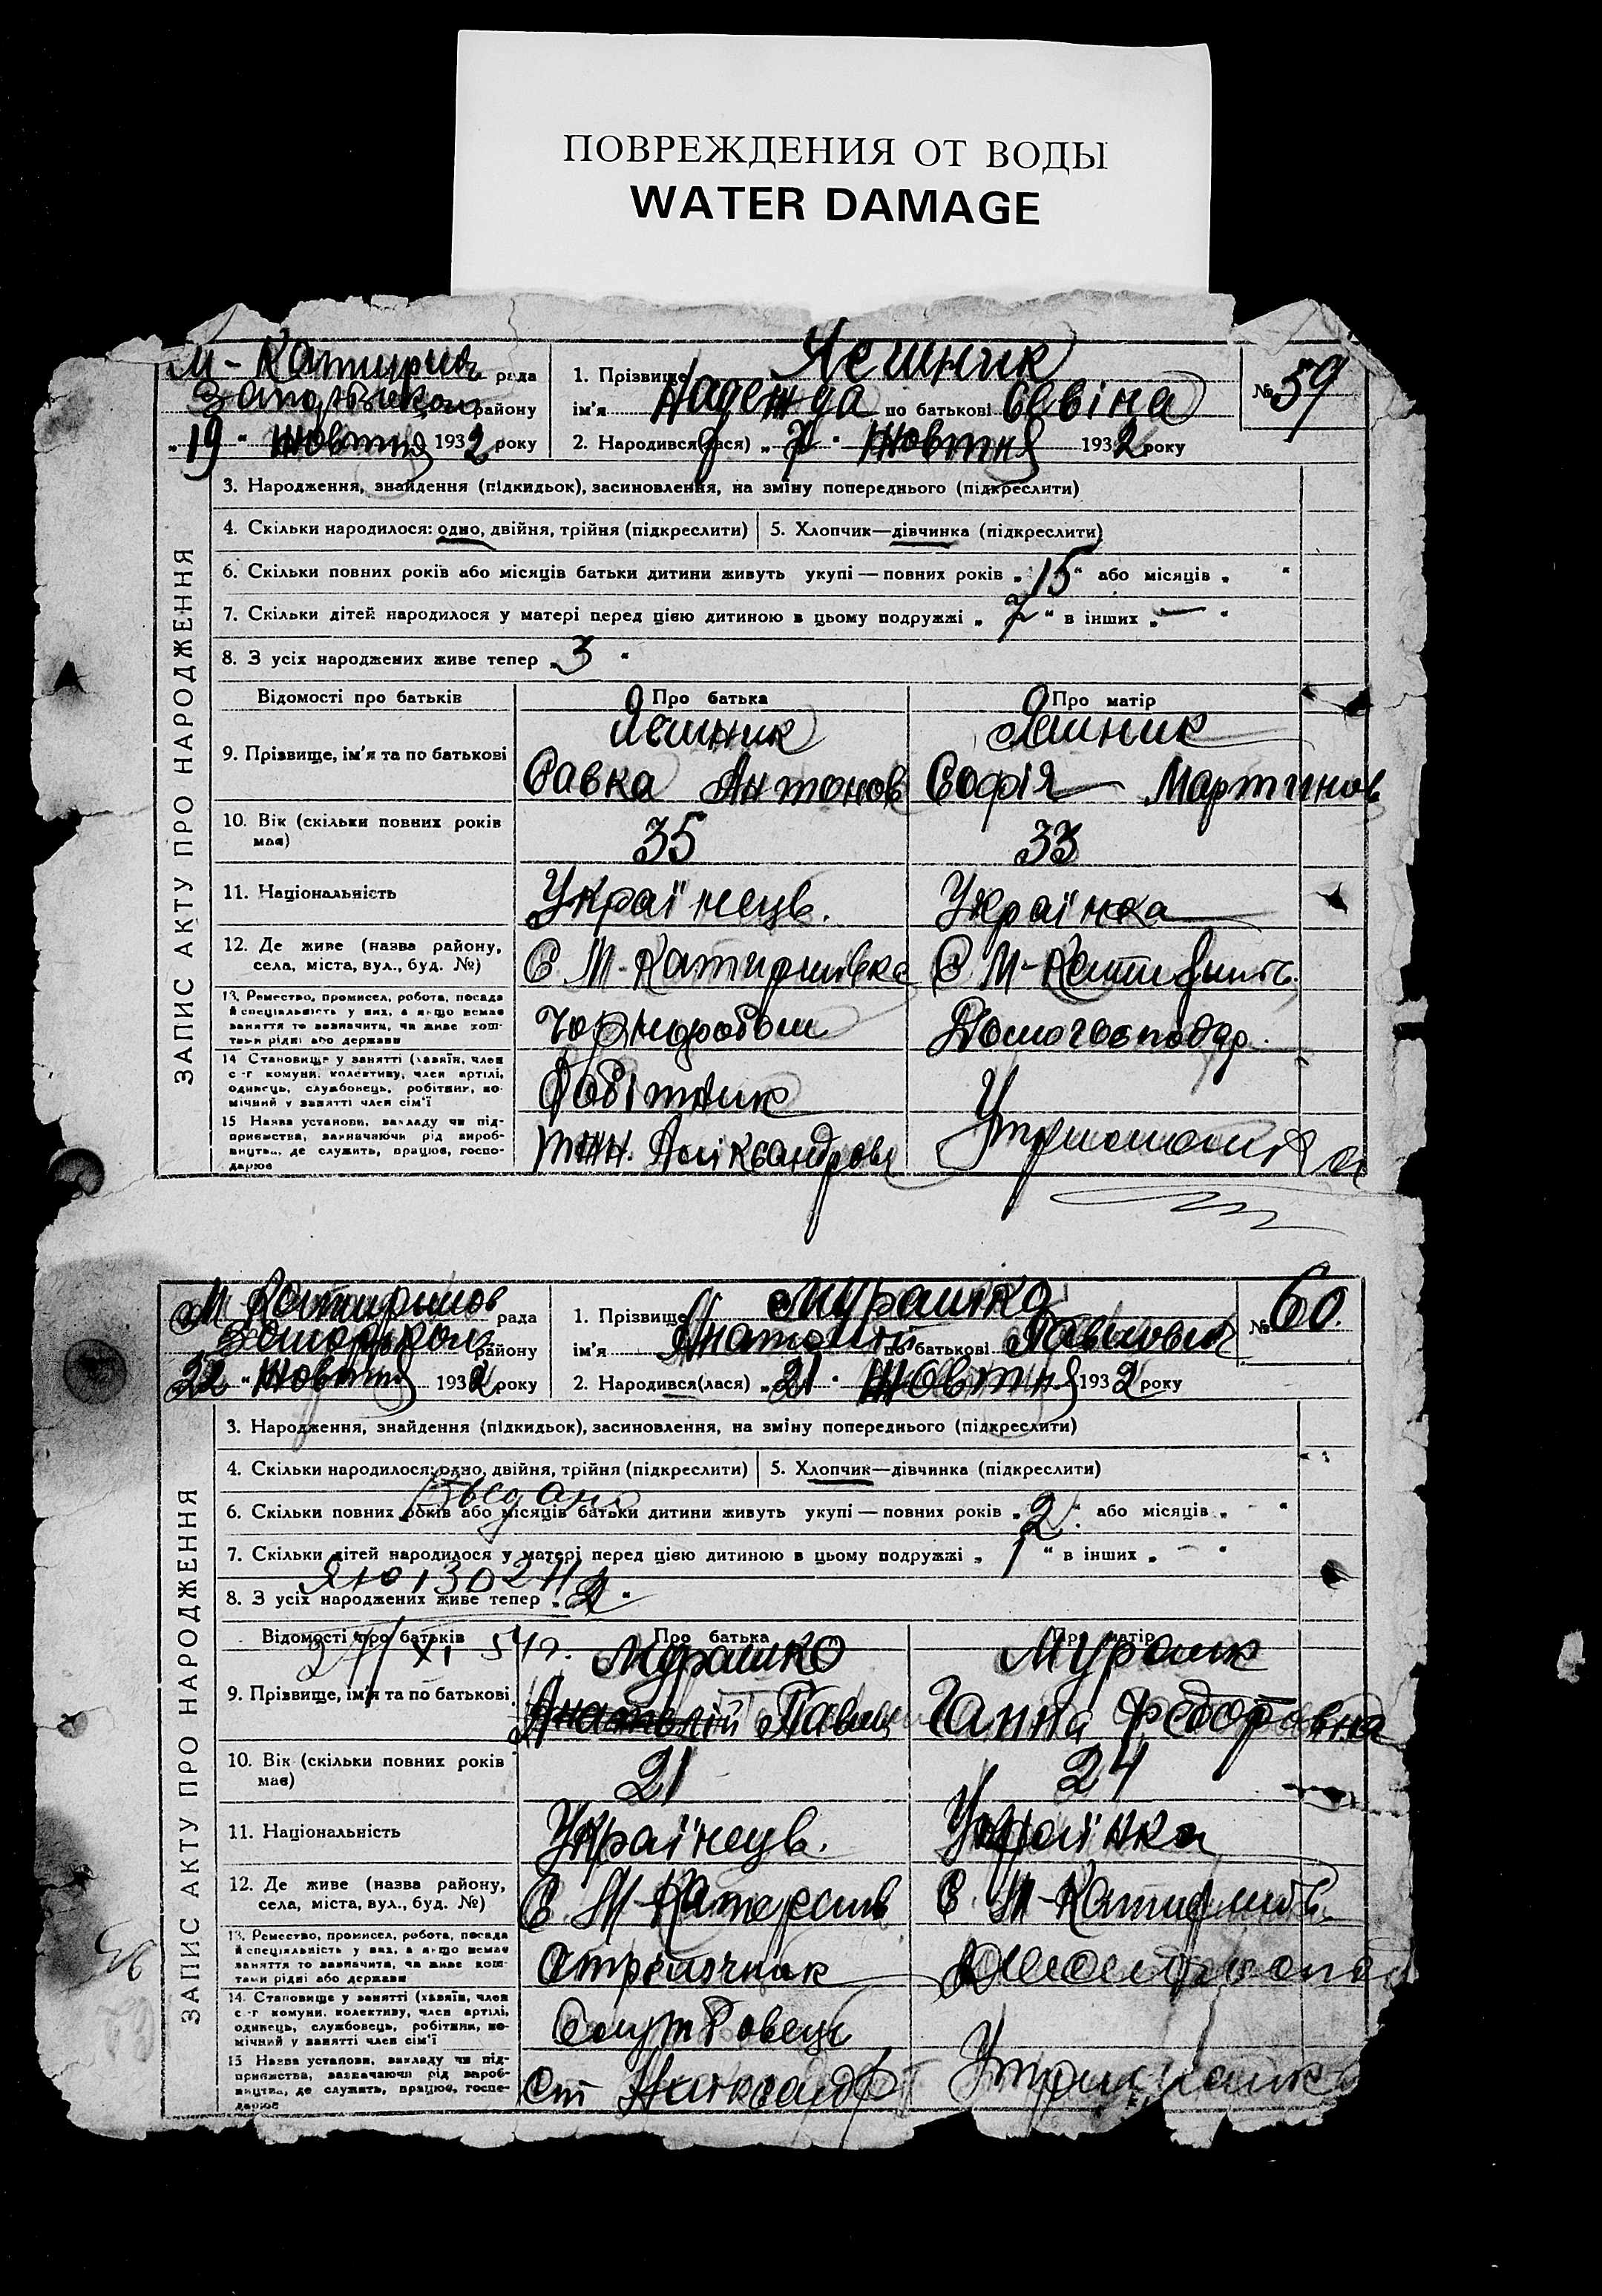 ПОВРЕЖДЕНИЯ ОТ ВОДЫ
WATER DAMAGE
М-Катириш рада
району
„19“ Жовтня 1932 року
1. Прізвище
ім'я Надежда по батькові Савіна
2. Народився(лася) „7“ Жовтня 1932 року
№ 59
ЗАПИС АКТУ ПРО НАРОДЖЕННЯ
3. Народження, знайдення (підкидьок), засиновлення, на зміну попереднього (підкреслити)
4. Скільки народилося: одно, двійня, трійня (підкреслити) 5. Хлопчик—дівчинка (підкреслити)
6. Скільки повних років або місяців батьки дитини живуть укупі — повних років „15“ або місяців „ “
7. Скільки дітей народилося у матері перед цією дитиною в цьому подружжі „7“ в інших „—“
8. З усіх народжених живе тепер „3“
Відомості про батьків Про батька Про матір
9. Прізвище, ім'я та по батькові
Савка Антонов Софія Мартинов
10. Вік (скільки повних років має) 35 33
11. Національність Українець. Українка
12. Де живе (назва району, села, міста, вул., буд. №) С. М-Катиришівка С М-Катириш
13. Ремество, промисел, робота, посада й спеціальність у них, а якщо немає заняття то зазначити, чи живе коштами рідні або держави Чорнороб Домогосподар.
14 Становище у занятті (хазяїн, член с-г комуни, колективу, член артілі, одинець, службовець, робітник, помічний у занятті член сім'ї Робітник
15 Назва установи, закладу чи підприємства, зазначаючи рід виробництва, де служить, працює, господарює
М Катиришов рада
району
22 “ Жовтня 1932 року
1. Прізвище Мурашко
ім'я Анатолій по батькові Павлович
2. Народився(лася) „21“ Жовтня 1932 року
№ 60.
ЗАПИС АКТУ ПРО НАРОДЖЕННЯ
3. Народження, знайдення (підкидьок), засиновлення, на зміну попереднього (підкреслити)
4. Скільки народилося: одно, двійня, трійня (підкреслити) 5. Хлопчик—дівчинка (підкреслити)
6. Скільки повних років або місяців батьки дитини живуть укупі — повних років „2“ або місяців „ “
7. Скільки дітей народилося у матері перед цією дитиною в цьому подружжі „1“ в інших „—“
8. З усіх народжених живе тепер „2“
Відомості про батьків Про батька Про матір
Мурашко Мурашк
9. Прізвище, ім'я та по батькові Анатолій Павл Ганна Федоровна
10. Вік (скільки повних років має) 21 24
11. Національність Українець. Українка
12. Де живе (назва району, села, міста, вул., буд. №) С. М-Катериш С. М-Катириш
13. Ремество, промисел, робота, посада й спеціальність у них, а якщо немає заняття то зазначити, чи живе коштами рідні або держави
14. Становище у занятті (хазяїн, член с-г комуни, колективу, член артілі, одинець, службовець, робітник, помічний у занятті член сім'ї
15 Назва установи, закладу чи підприємства, зазначаючи рід виробництва, де служить, працює, господарює